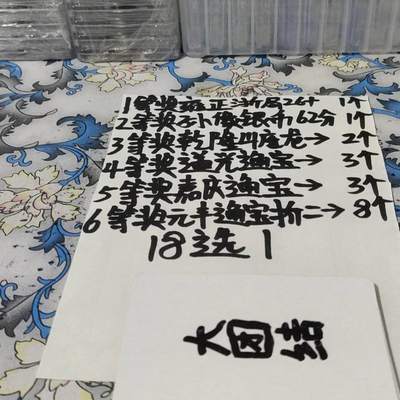 1等奖雍正浙局26+ 1个
2等奖孙像银币62分 1个
3等奖乾隆川虎龙→ 2个
4等奖道光通宝→ 3个
5等奖嘉庆通宝→ 3个
6等奖元丰通宝折二→ 8个
18选1
大团结